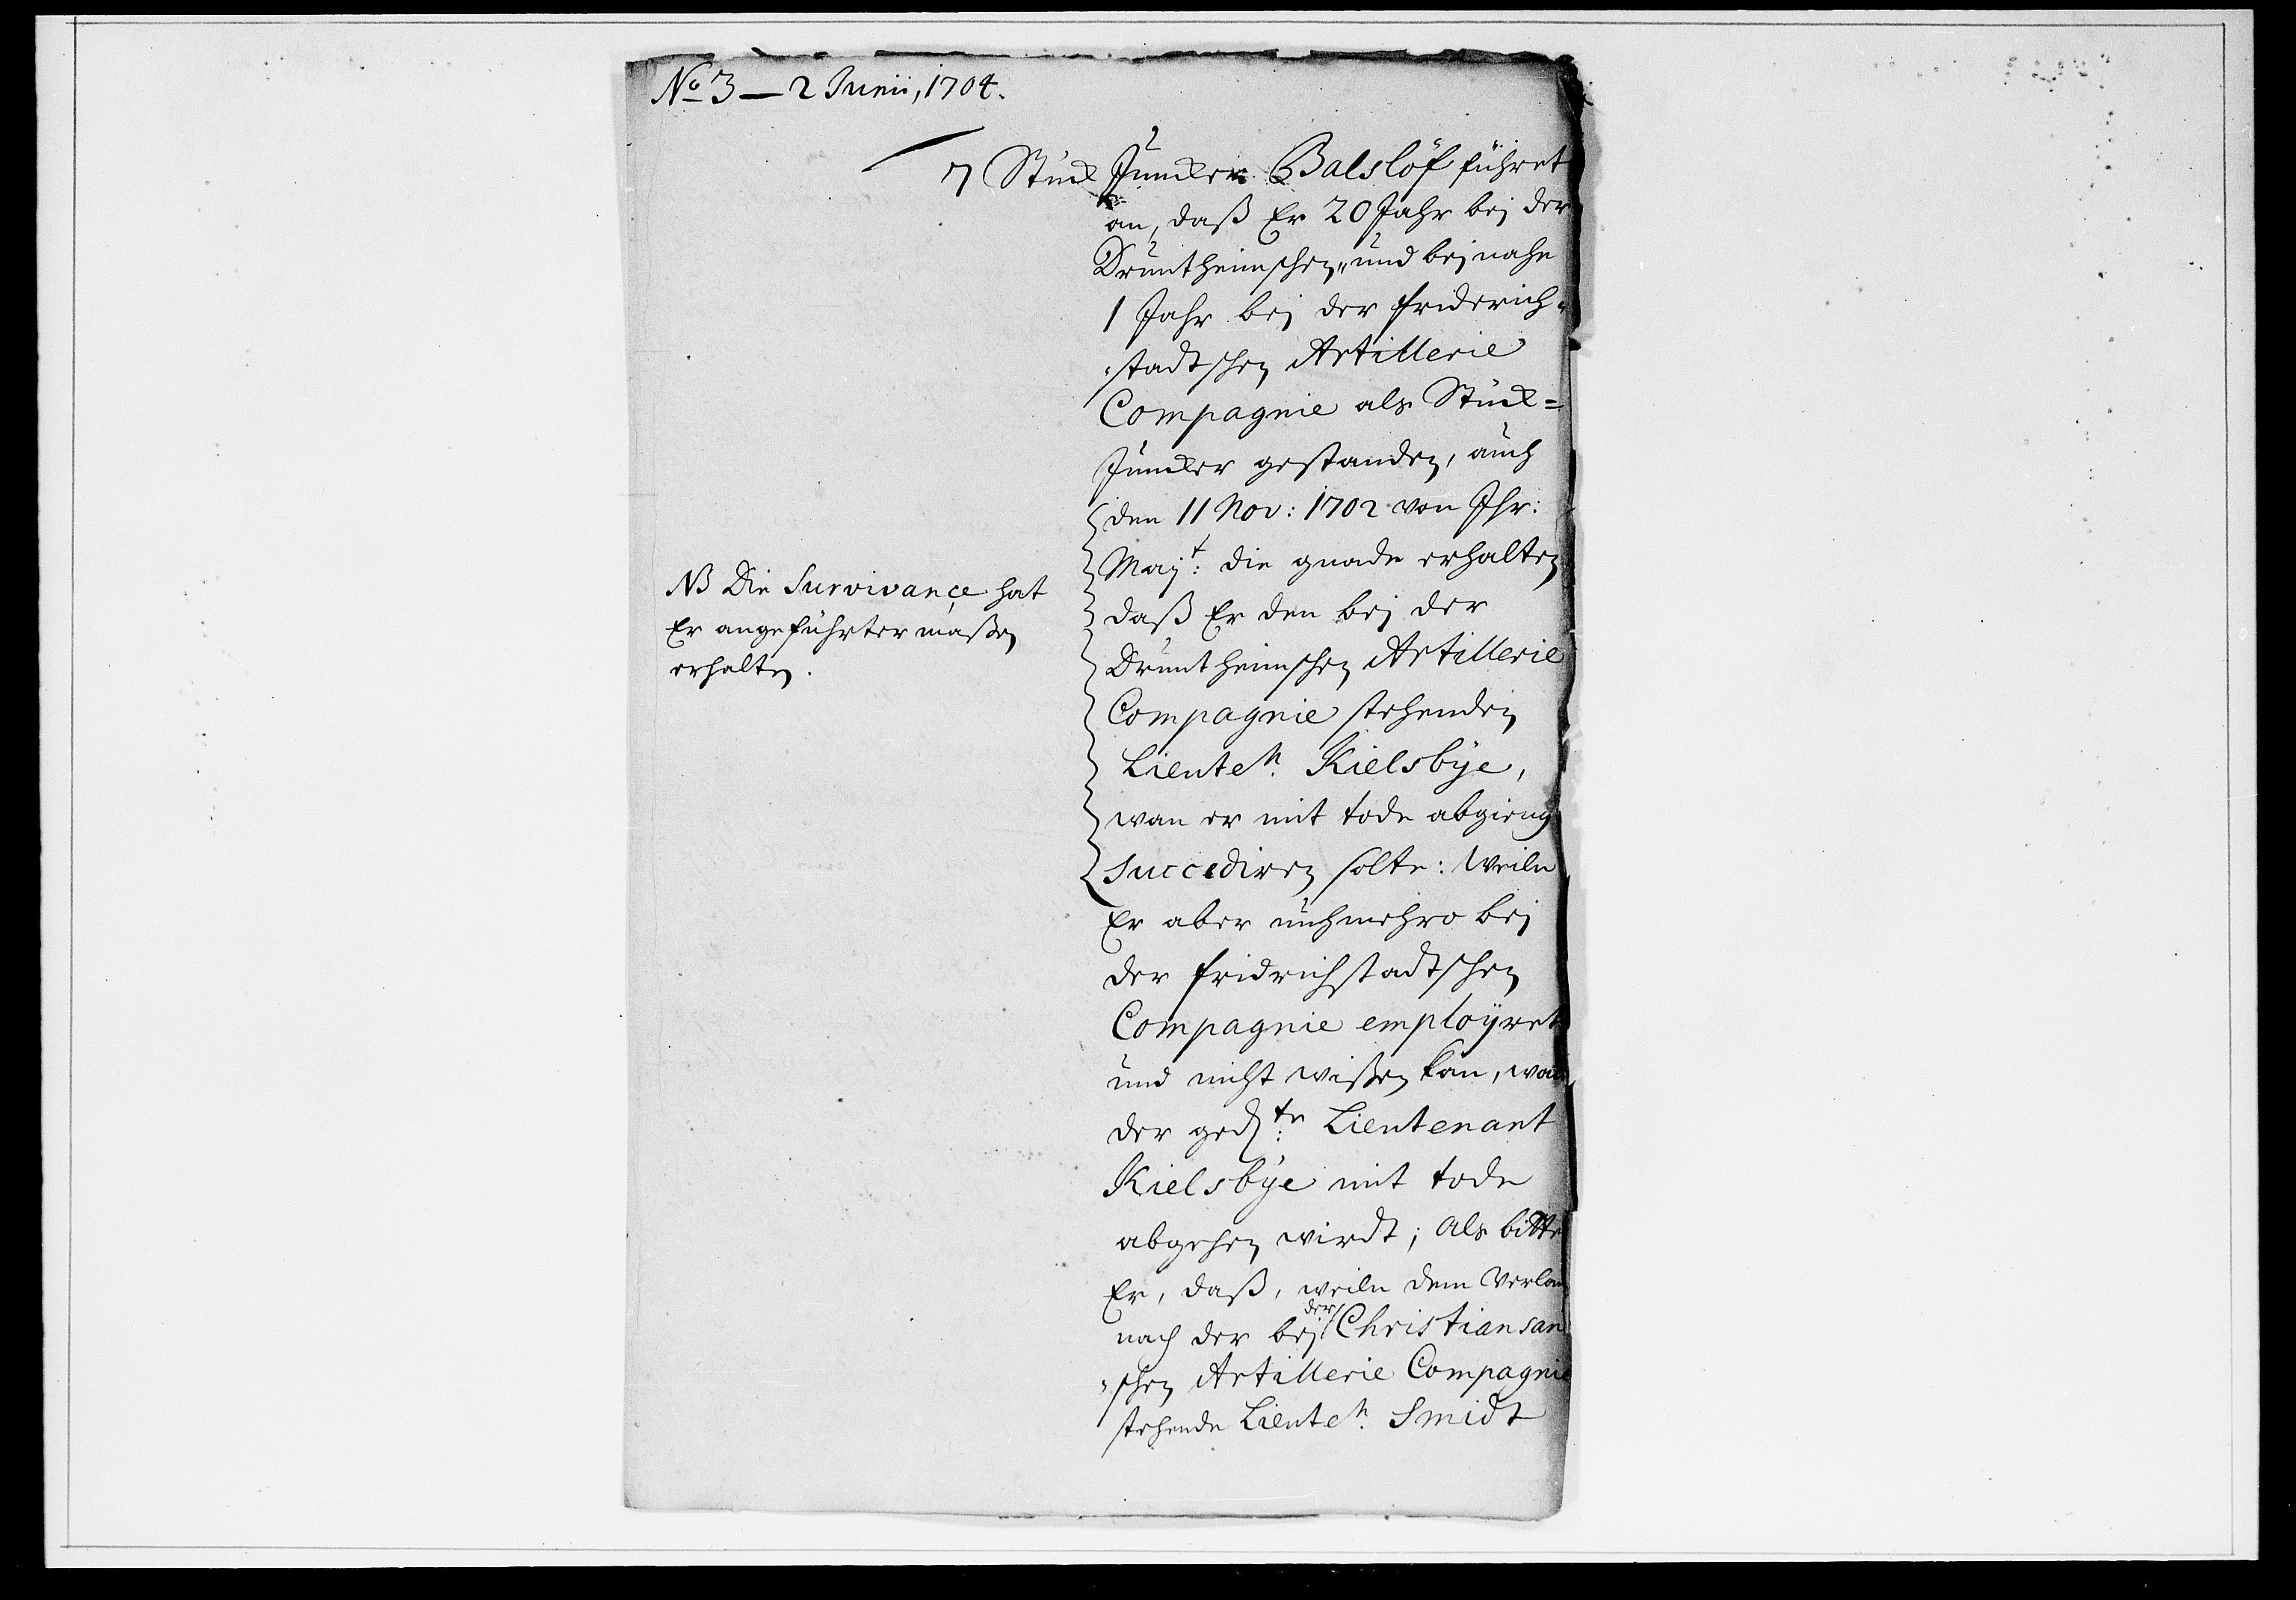 No 3 — 2 Junii, 1704.
7 Stück Juncker Balslöf führet
an, daß Er 20 Jahr bej der
Druntheimschen, und bej nahe
1 Jahr bej der friderich-
stadtschen Artillerie
Compagnie als Stück=
Juncker gestanden, auch
den 11 Nov: 1702 von Ihr:
Majt: die gnade erhalten
daß Er den bej der
Druntheimschen Artillerie
Compagnie stehenden
Lieuten. Kielsbÿe,
wan er mit tode abgieng
succediren solte: Weile
Er aber nuhmehro bej
der fridrichstadtschen
Compagnie employret
und nicht wißen kan, wan
der gedte: Lieutenant
Kielsbÿe mit tode
abgehen wirdt; als bitte
Er, daß, weile dem Verlau
nach der bej der Christiansan
schen Artillerie Compagnie
stehende Lieuten. Smidt
NB Die Survivançe hat
Er angeführter maßen
erhalten.